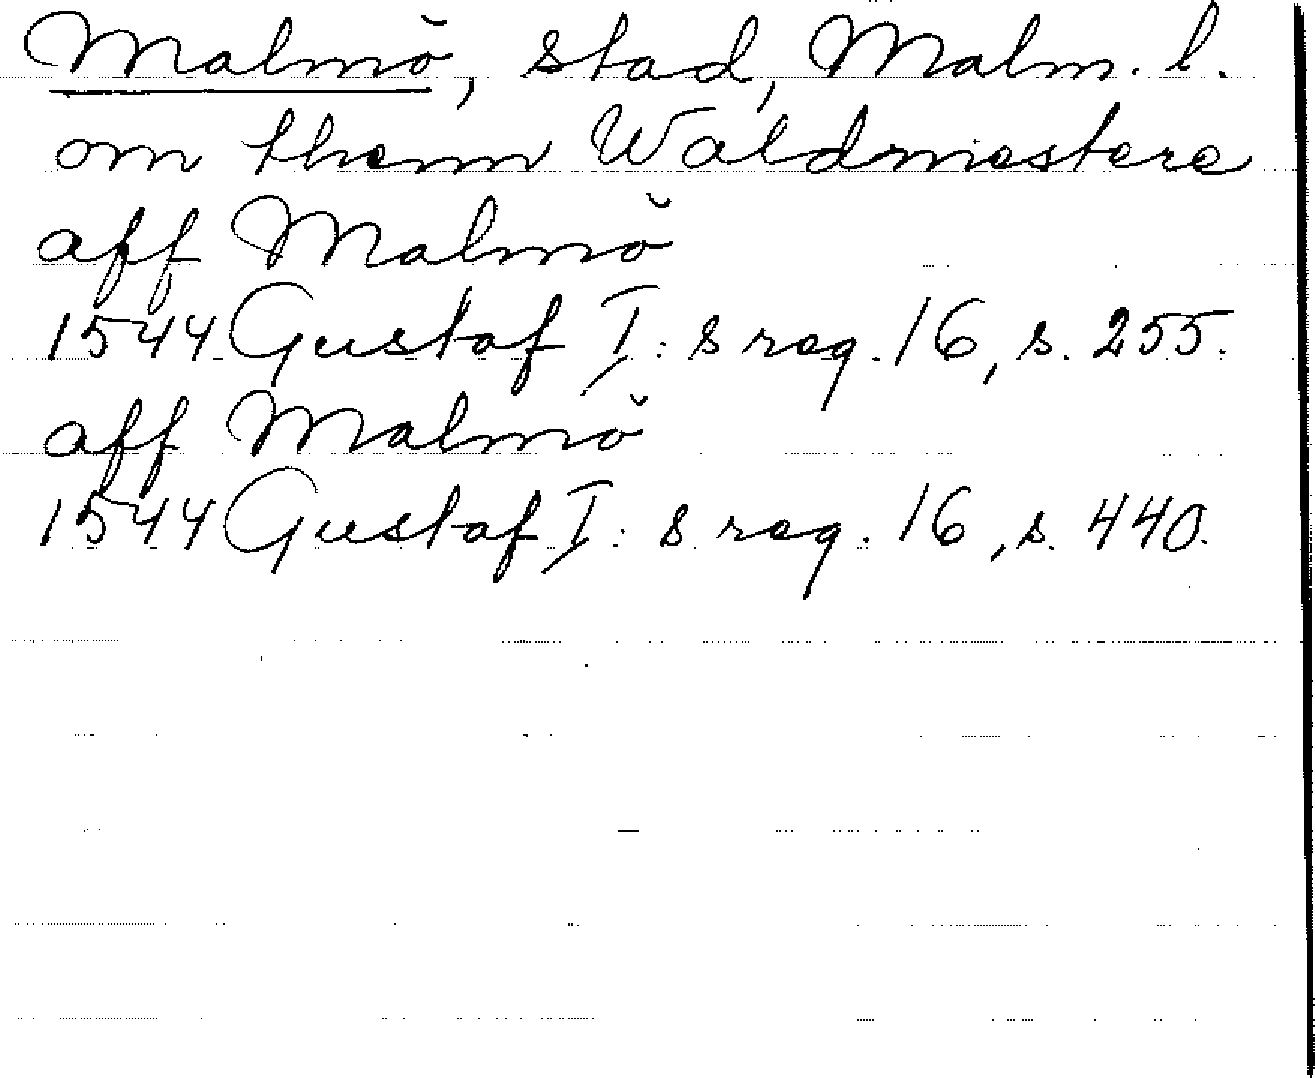 Malmö, stad, Malm. l.
om them Waldmestere
aff Malmö
1544 Gustaf I: s reg. 16, s. 255.
aff Malmö
1544 Gustaf I: s reg. 16, s. 440.